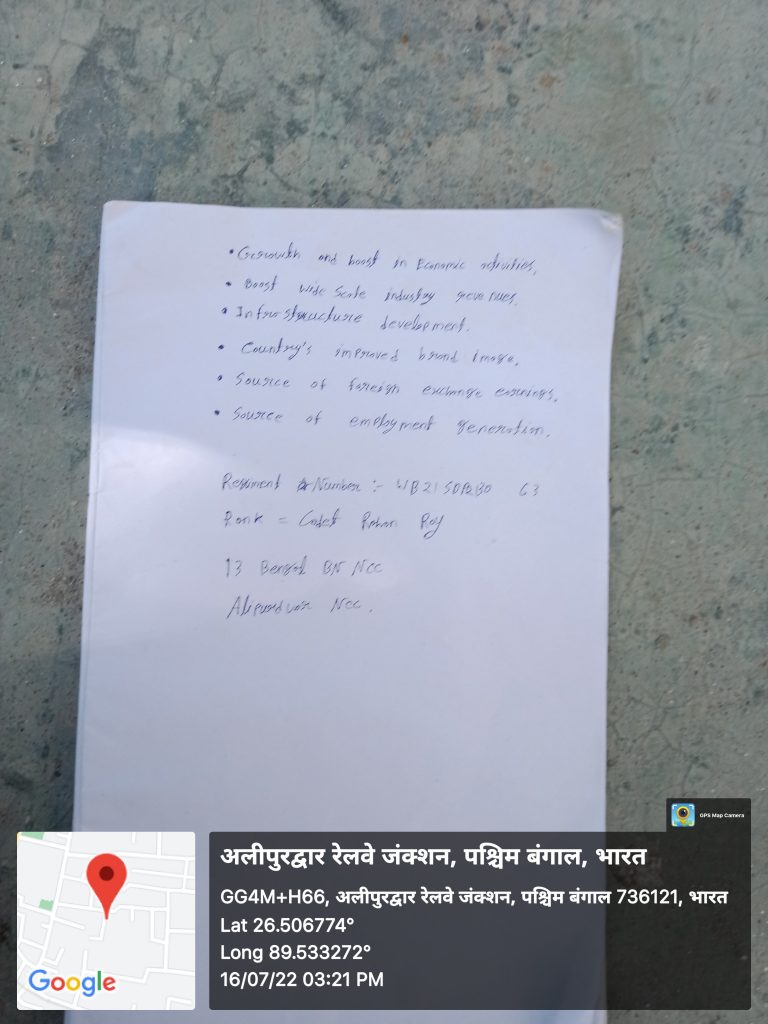 • Growth and boost in Economic activities.
• Boost wide scale industry revenues.
• Infrastructure development.
• Country's improved brand image.
• Source of foreign exchange earnings.
• Source of employment generation.
Regiment Number :- 63
Rank = Cadet Roy
13 Bengal BN NCC
Alipurduar NCC.
GPS Map Camera
अलीपुरद्वार रेलवे जंक्शन, पश्चिम बंगाल, भारत
GG4M+H66, अलीपुरद्वार रेलवे जंक्शन, पश्चिम बंगाल 736121, भारत
Lat 26.506774°
Long 89.533272°
16/07/22 03:21 PM
Google